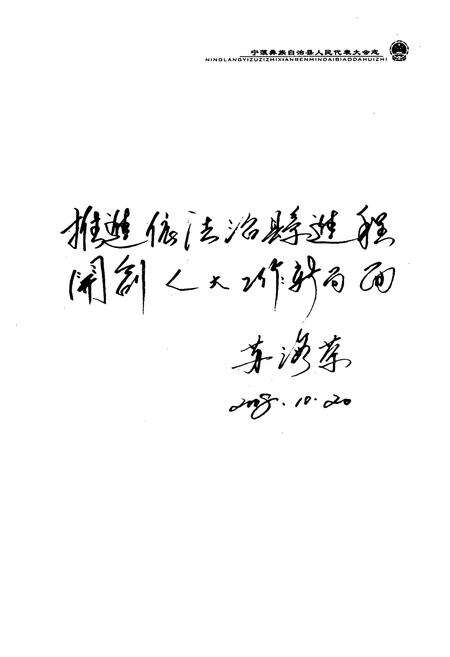 宁蒗彝族自治县人民代表大会志
NINGLANGYIZUZIZHIXIANRENMINDAIBIAODAHUIZHI
推進依法治縣進程
開創人大工作新局面
苏海荣
2008.10.20